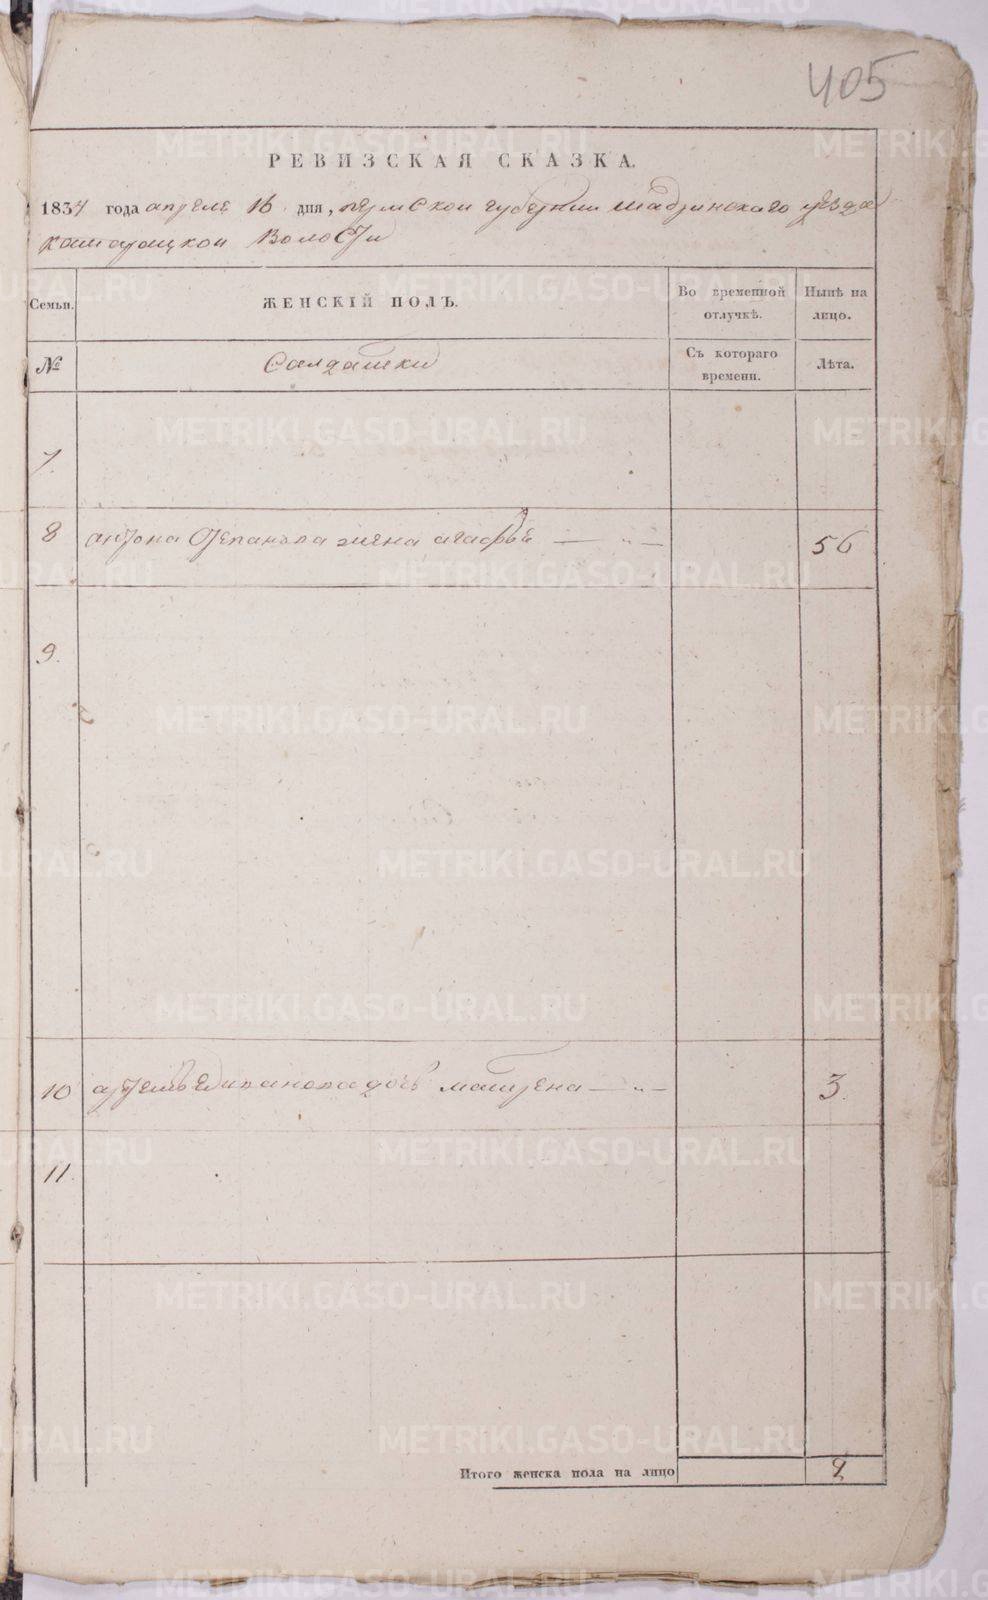 405
РЕВИЗСКАЯ СКАЗКА.
1834 года апреле 16 дня, пермской губернии шадринскаго уезда
волости
Семьи.
ЖЕНСКІЙ ПОЛЪ.
Во временной отлучкѣ.
Нынѣ на лицо.
№
Салдатки
Съ котораго времени.
Лѣта.
7.
8 антона степанова жена агафья — „ — 56
9.
10 доч матрена — „ — 3.
11.
Итого женска пола на лицо 2
METRIKI.GASO-URAL.RU